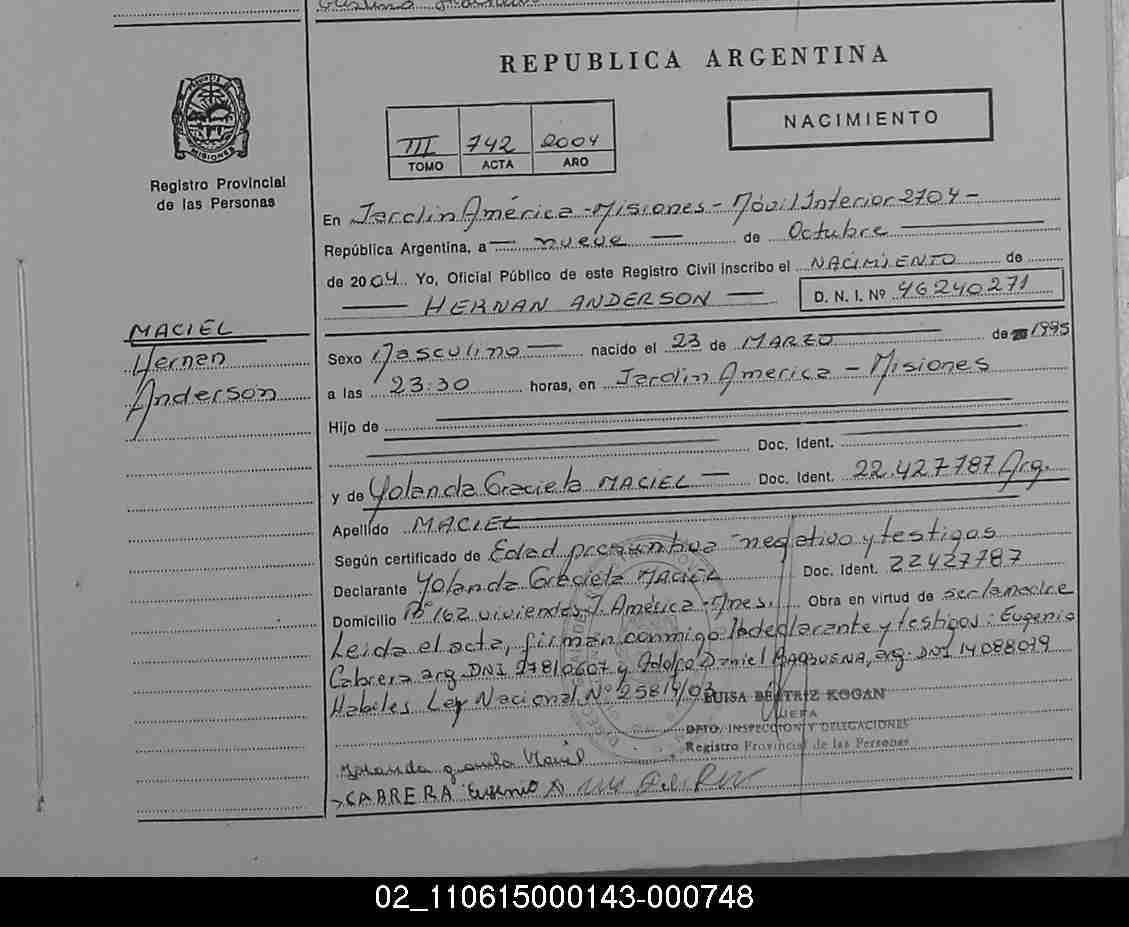 REPUBLICA ARGENTINA
III 742 2004
TOMO ACTA AÑO
NACIMIENTO
MISIONES
Registro Provincial
de las Personas
En Jardin América - Misiones - Móvil Interior 2704 -
República Argentina, a — nueve — de Octubre
de 2004. Yo, Oficial Público de este Registro Civil inscribo el NACIMIENTO de
— HERNAN ANDERSON — D. N. I. Nº 46240271
MACIEL
Hernan
Anderson
Sexo Masculino — nacido el 23 de MARZO de 1995
a las 23:30 horas, en Jardin America - Misiones
Hijo de
Doc. Ident.
y de Yolanda Graciela MACIEL — Doc. Ident. 22.427787 Arg.
Apellido MACIEL
Según certificado de Edad presuntiva negativo y testigos
Declarante Yolanda Graciela MACIEL Doc. Ident. 22427787
Domicilio Bº 162 viviendas J. América - Mnes. Obra en virtud de ser la madre
Leida el acta, firman conmigo la declarante y testigos: Eugenio
Cabrera arg. DNI 27810607 y Adolfo Daniel arg. DNI 14088079
Habiles Ley Nacional Nº 25819/03
LUISA BEATRIZ KOGAN
JEFA
DPTO. INSPECCION Y DELEGACIONES
Registro Provincial de las Personas
Yolanda Maciel
CABRERA Eugenio A
02_110615000143-000748